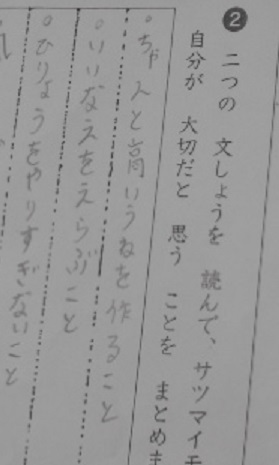 ❷ 二つの 文しょうを 読んで、サツマイモ
自分が 大切だと 思う ことを まとめま
○ちゃんと高いうねを作ること
○いいなえをえらぶこと
○ひりょうをやりすぎないこと